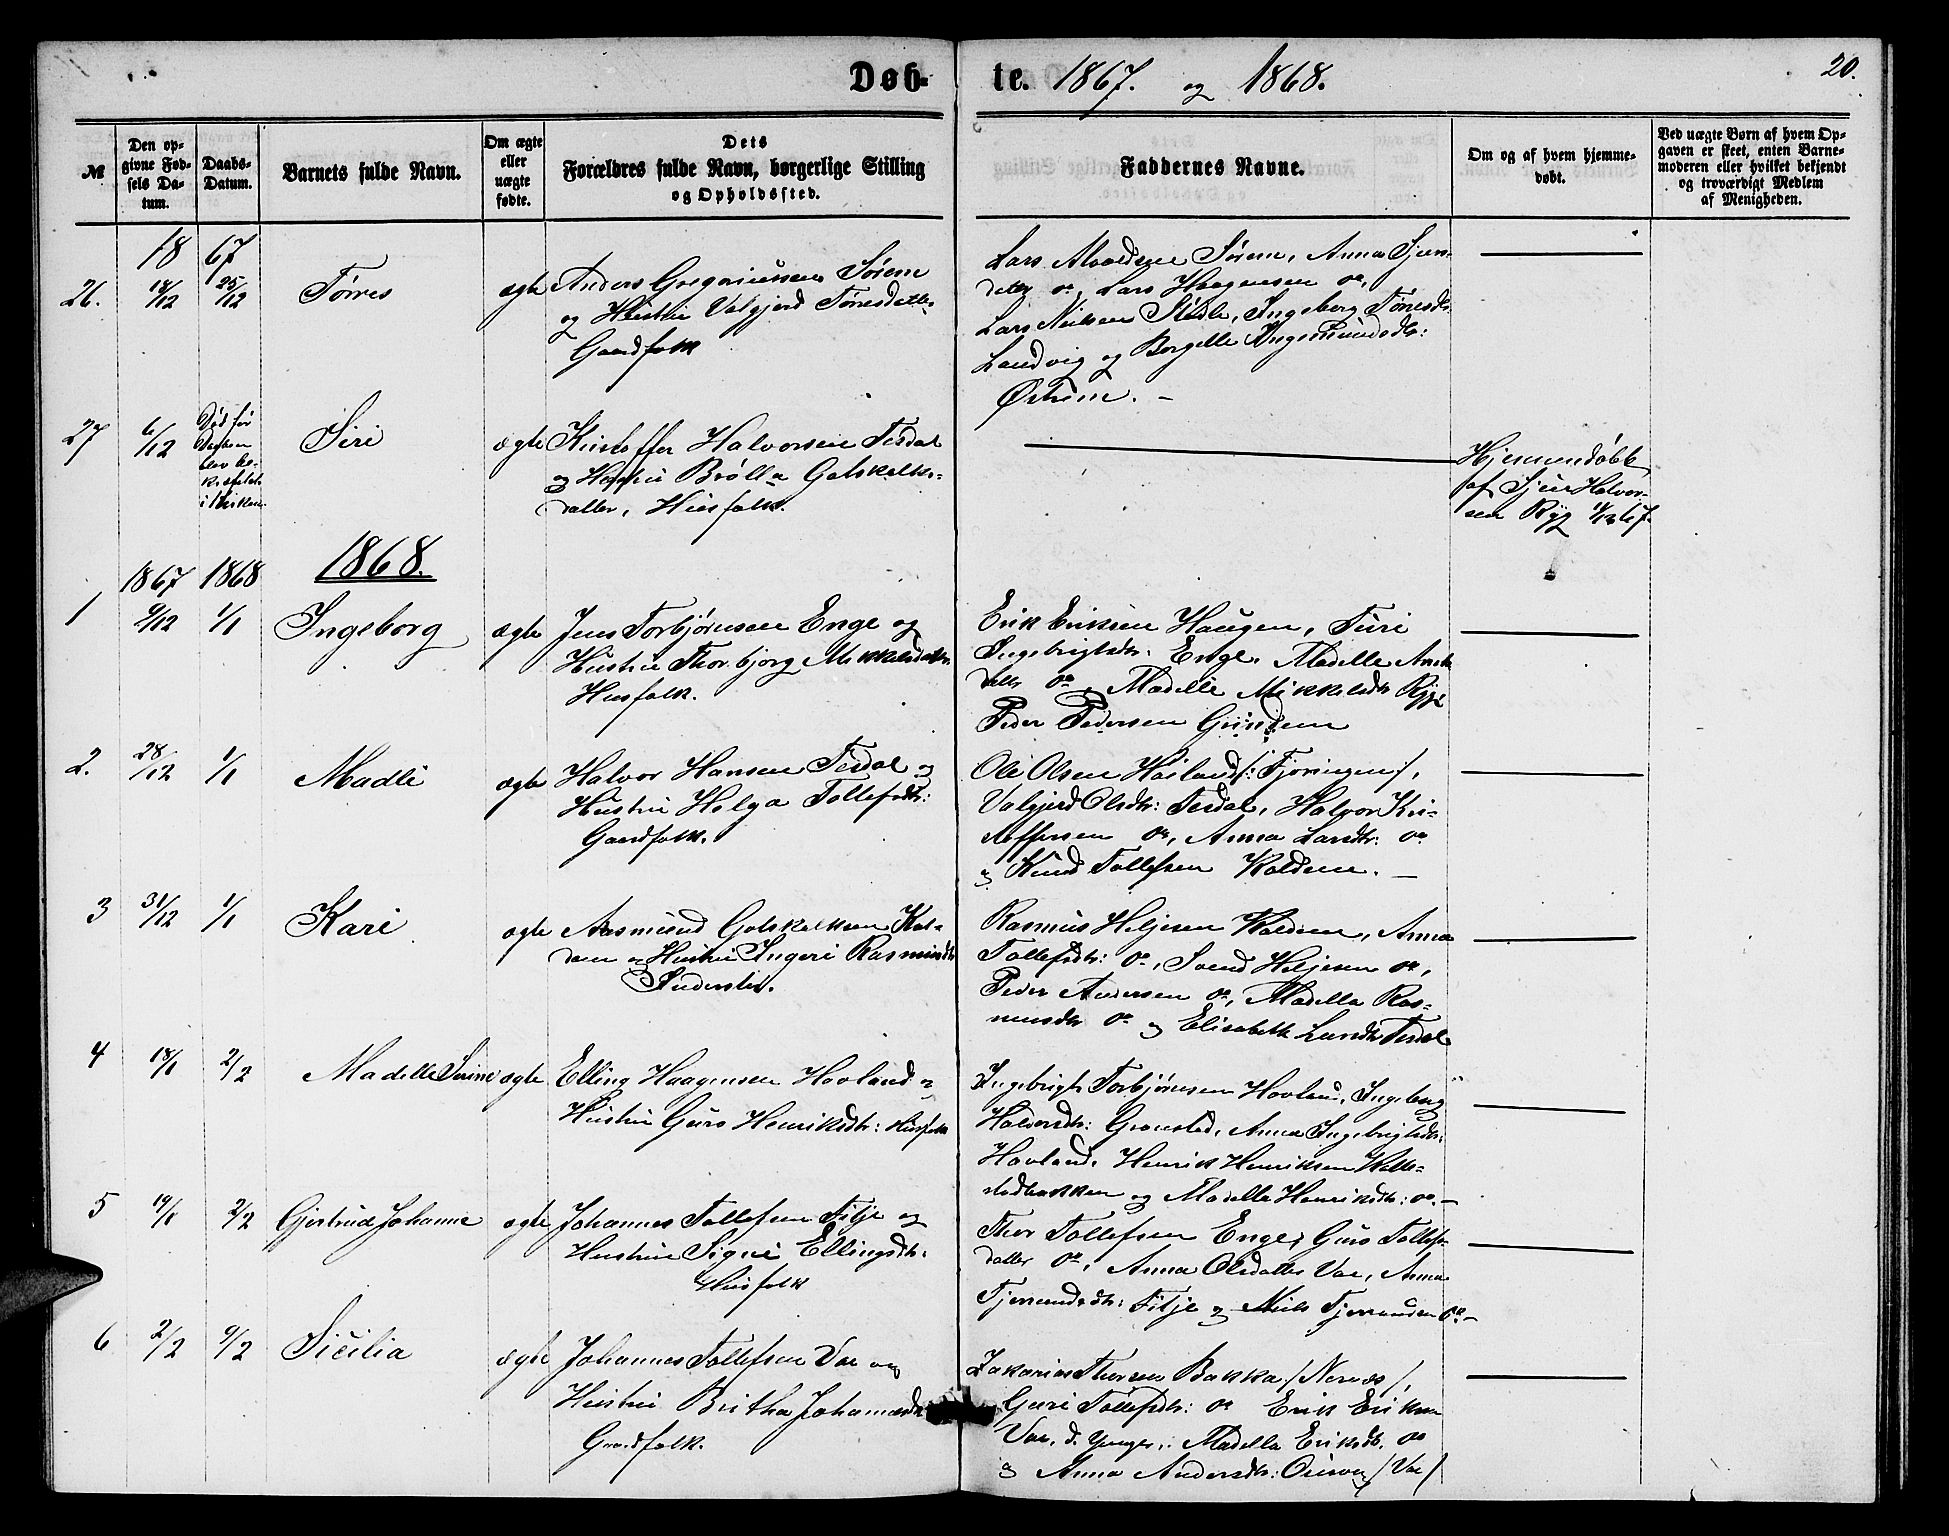 Døb-
te. 1867. og 1868.
20.
№
Den op-
givne Fød-
sels Da-
tum.
Daabs-
Datum.
Barnets fulde Navn.
Om ægte
eller
uægte
fødte.
Dets
Forældres fulde Navn, borgerlige Stilling
og Opholdssted.
Faddernes Navne.
Om og af hvem hjemme-
døbt.
Ved uægte Børn af hvem Op-
gaven er skeet, enten Barne-
moderen eller hvilket bekjendt
og troværdigt Medlem
af Menigheden.
18 67
26. 18/12 25/12 Tørres ægte
Anders Gregoriussen Sørem
og Hustru Valgjerd Tørresdatter
Gaardfolk
Lars Sørem, Anna Sjurs-
datter do, Lars Haagensen do,
Lars Nielsen Stedle, Ingeborg Tørresdtr
Landvig og Borgille Angemundsdtr:
Østrem. -
27 6/12
Død før
Daaben
blev be-
kræftet
i Kirken.
Siri ægte
Kristoffer Halvorsen Tesdal
og Hustru Brølla Gotskalks-
datter, Huusfolk.
Hjemmedøbt
af Sjur Halvor-
sen Ryg 11/12 67.
1867 1868 1868.
1 9/12 1/1 Ingeborg ægte
Jens Torbjørnsen Enge og
Hustru Thorbjorg Mikkelsdatter
Huusfolk.
Erik Eriksen Haugen, Turi
Ingebrigtsdtr: Enge, Madelle
datter do, Madelle Mikkelsdtr Rygg
Peder Pedersen
2. 28/12 1/1 Madli ægte
Halvor Hansen Tesdal og
Hustru Helga Tollefsdtr:
Gaardfolk.
Ole Olsen Høiland /: Fjoringen :/,
Valgjerd Olsdtr: Tesdal, Halvor Kri-
stoffersen do, Anna Larsdtr: do
og Knud Tollefsen Koldene. -
3 31/12 1/1 Kari ægte
Aasmund Gotskalksen Kol-
dene og Hustru Ingeri Rasmusdtr
Inderster.
Rasmus Heljesen Koldene, Anna
Tollefsdtr: do, Svend Heljesen do,
Peder Andersen do, Madella Ras-
musdtr do og Elisabeth Larsdtr Tesdal
4 18/1 2/2 Madelle Serine ægte
Elling Haagensen Hovland og
Hustru Guro Henriksdtr: Husfolk
Ingebrigt Torbjørnsen Hovland, Ingeborg
Halvorsdtr: Gronsted, Anna Ingebrigtsdtr:
Hovland, Henrik Henriksen
og Madella Henriksdtr: do. -
5 19/1 2/2 Gjertrud Johanne ægte
Johannes Tollefsen Fitje og
Hustrue Signe Ellingsdtr:
Huusfolk
Thor Tollefsen Enge, Guro Tollefs-
datter do, Anna Olsdatter Vae, Anna
Tjerandsdtr: Fitje og Niels Tjerandsen do -
6 2/2 9/2 Sicilia ægte
Johannes Tollefsen Vae og
Hustru Britha Johannesdtr
Gaardfolk.
Zakarias Thorsen Bakka /Nernæs/,
Guri Tollefsdtr: do Erik Eriksen
Vae, d. yngre, Madella Eriksdtr. do
og Anna Andersdtr: /Vae/